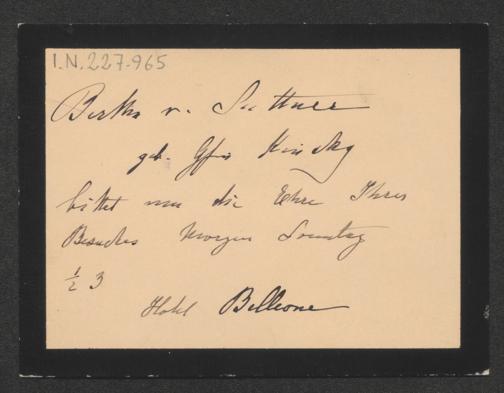 I.N. 227.965
Bertha v. Suttner
geb. Gfin Kinsky
bittet um die Ehre Ihres
Besuches Morgen Sonntag
½ 3
Hotel Bellevue